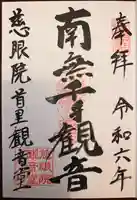 奉拝 令和六年
南無千手観音
慈眼院 首里観音堂